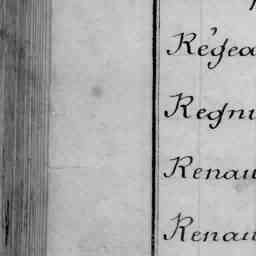 Régea
Regnu
Renau
Renau